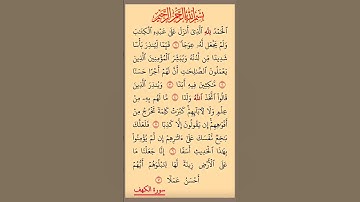 بِسْمِ اللَّهِ الرَّحْمَٰنِ الرَّحِيمِ
ٱلْحَمْدُ لِلَّهِ ٱلَّذِىٓ أَنزَلَ عَلَىٰ عَبْدِهِ ٱلْكِتَٰبَ
وَلَمْ يَجْعَل لَّهُۥ عِوَجَا ۝ قَيِّمًا لِّيُنذِرَ بَأْسًا
شَدِيدًا مِّن لَّدُنْهُ وَيُبَشِّرَ ٱلْمُؤْمِنِينَ ٱلَّذِينَ
يَعْمَلُونَ ٱلصَّٰلِحَٰتِ أَنَّ لَهُمْ أَجْرًا حَسَنًا
۝ مَّٰكِثِينَ فِيهِ أَبَدًا ۝ وَيُنذِرَ ٱلَّذِينَ
قَالُوا۟ ٱتَّخَذَ ٱللَّهُ وَلَدًا ۝ مَّا لَهُم بِهِۦ مِنْ
عِلْمٍ وَلَا لِءَابَآئِهِمْ كَبُرَتْ كَلِمَةً تَخْرُجُ مِنْ
أَفْوَٰهِهِمْ إِن يَقُولُونَ إِلَّا كَذِبًا ۝ فَلَعَلَّكَ
بَٰخِعٌ نَّفْسَكَ عَلَىٰٓ ءَاثَٰرِهِمْ إِن لَّمْ يُؤْمِنُوا۟
بِهَٰذَا ٱلْحَدِيثِ أَسَفًا ۝ إِنَّا جَعَلْنَا مَا
عَلَى ٱلْأَرْضِ زِينَةً لَّهَا لِنَبْلُوَهُمْ أَيُّهُمْ
أَحْسَنُ عَمَلًا ۝
سورة الكهف